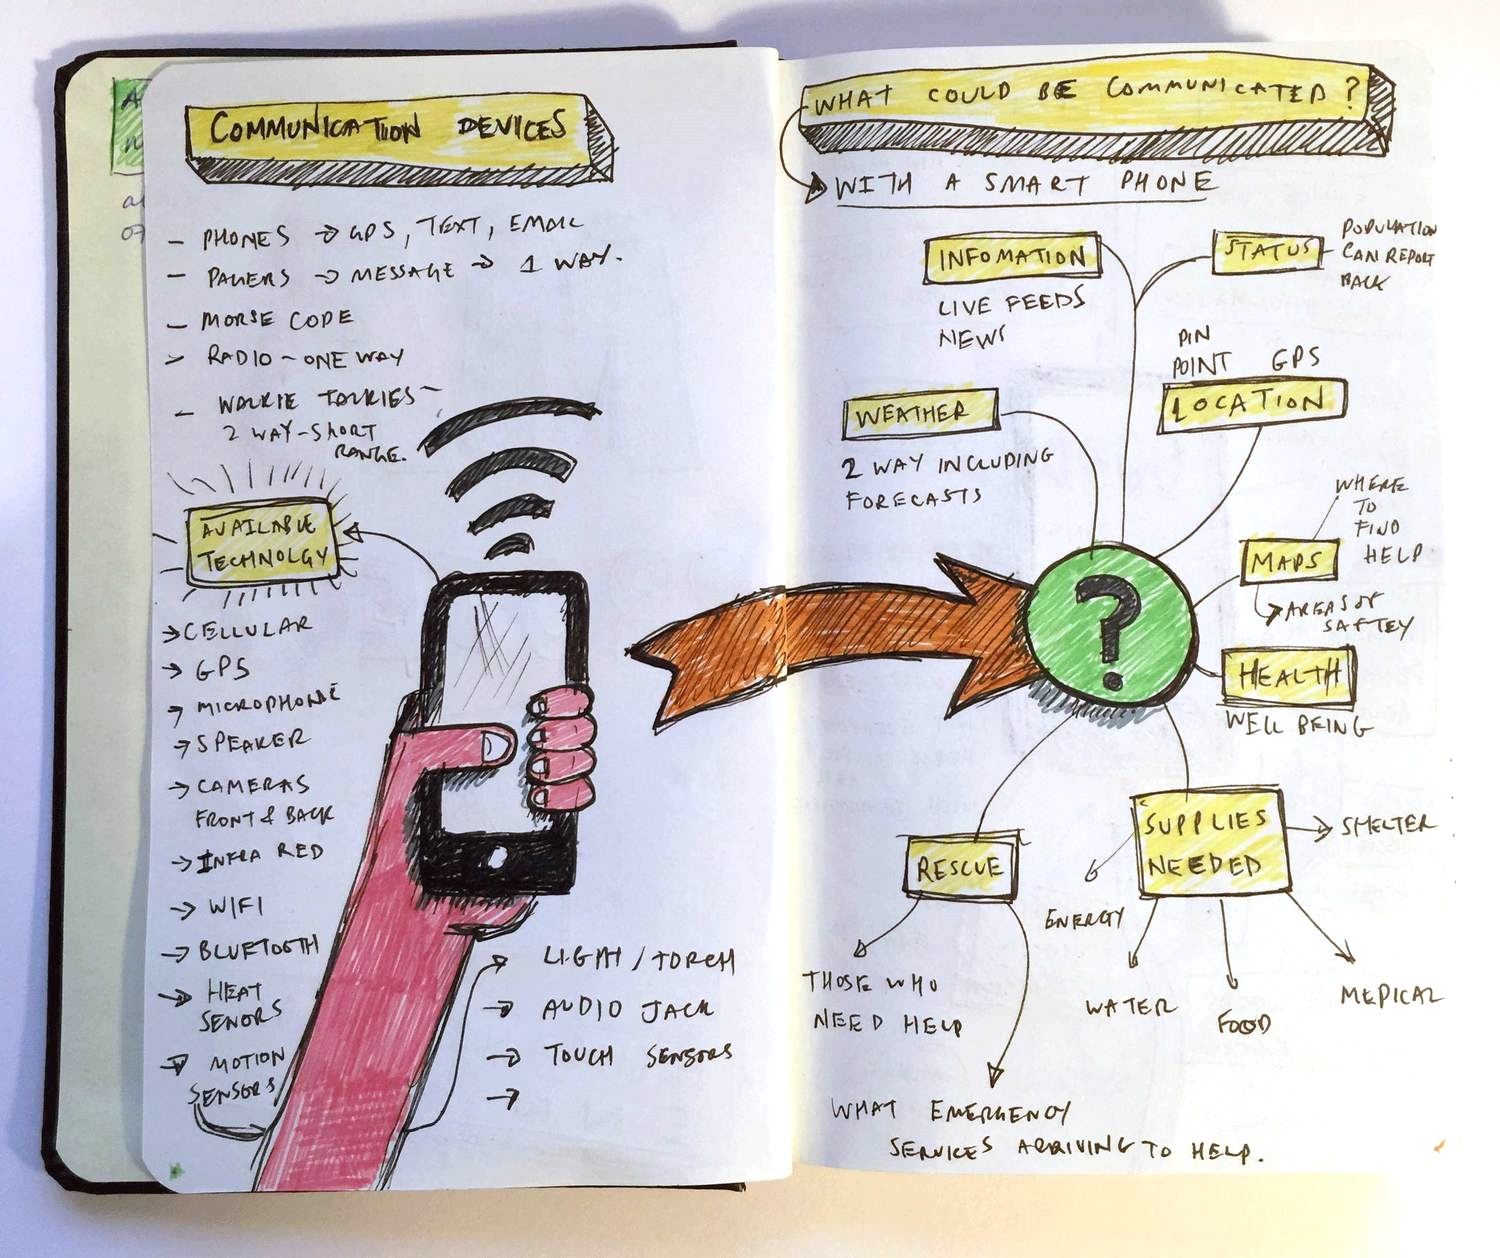 COMMUNICATION DEVICES
- PHONES → GPS, TEXT, EMAIL
- PAGERS → MESSAGE → 1 WAY.
- MORSE CODE
> RADIO - ONE WAY
- WALKIE TALKIES -
2 WAY - SHORT
RANGE.
AVAILABLE
TECHNOLGY
→ CELLULAR
→ GPS
→ MICROPHONE
→ SPEAKER
→ CAMERAS
FRONT & BACK
→ INFRA RED
→ WIFI
→ BLUETOOTH
→ HEAT
SENORS
→ MOTION
SENSORS
→ LIGHT / TORCH
→ AUDIO JACK
→ TOUCH SENSORS
→
WHAT COULD BE COMMUNICATED?
→ WITH A SMART PHONE
INFOMATION
LIVE FEEDS
NEWS
STATUS
POPULATION
CAN REPORT
BACK
PIN
POINT GPS
LOCATION
WEATHER
2 WAY INCLUDING
FORECASTS
MAPS
WHERE
TO
FIND
HELP
→ AREAS OF
SAFTEY
?
HEALTH
WELL BEING
RESCUE
THOSE WHO
NEED HELP
WHAT EMERGENCY
SERVICES ARRIVING TO HELP.
SUPPLIES
NEEDED
→ SHELTER
ENERGY
WATER
FOOD
MEDICAL